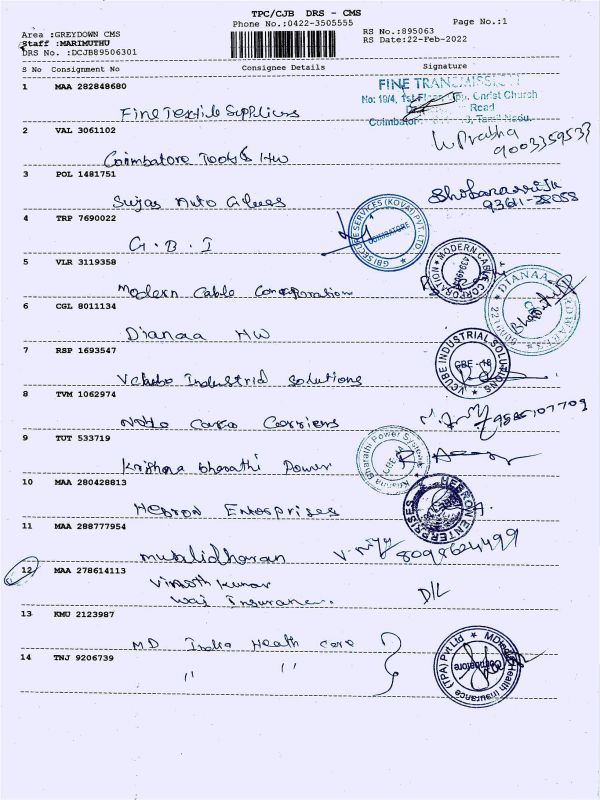 TPC/CJB DRS - CMS
Phone No.:0422-3505555
Page No.:1
Area :GREYDOWN CMS
Staff :MARIMUTHU
DRS No. :DCJB89506301
RS No.:895063
RS Date:22-Feb-2022
S No Consignment No Consignee Details Signature
1 MAA 282848680
Fine Textile Suppliers
FINE TRANSMISSION
No: 19/4, 1st Floor, Christ Church
Road
Coimbatore Tamil Nadu.
2 VAL 3061102
Coimbatore Tools & HW
Prabha
9003359533
3 POL 1481751
Sujas Auto
93611-28055
4 TRP 7690022
G.B.I
GBI SECURE SERVICES (KOVAI) PVT. LTD.
COIMBATORE
5 VLR 3119358
Modern Cable Corporation
MODERN CABLE CORPORATION
6 CGL 8011134
Dianaa HW
DIANAA HARDWARES
7 RSP 1693547
Vcube Industrial Solutions
VCUBE INDUSTRIAL SOLUTIONS
CBE - 18
8 TVM 1062974
Carriers
9585107709
9 TUT 533719
Krishna bharathi Power
Krishna Bharathi Power System
CBE
10 MAA 280428813
Hebron Enterprises
HEBRON ENTERPRISES
11 MAA 288777954
Muralidharan
8098624499
12 MAA 278614113
Vinoth Kumar
Insurance.
D/L
13 KMU 2123987
MD India Health Care
14 TNJ 9206739
" "
MDIndia Health Insurance (TPA) Pvt.Ltd
Coimbatore